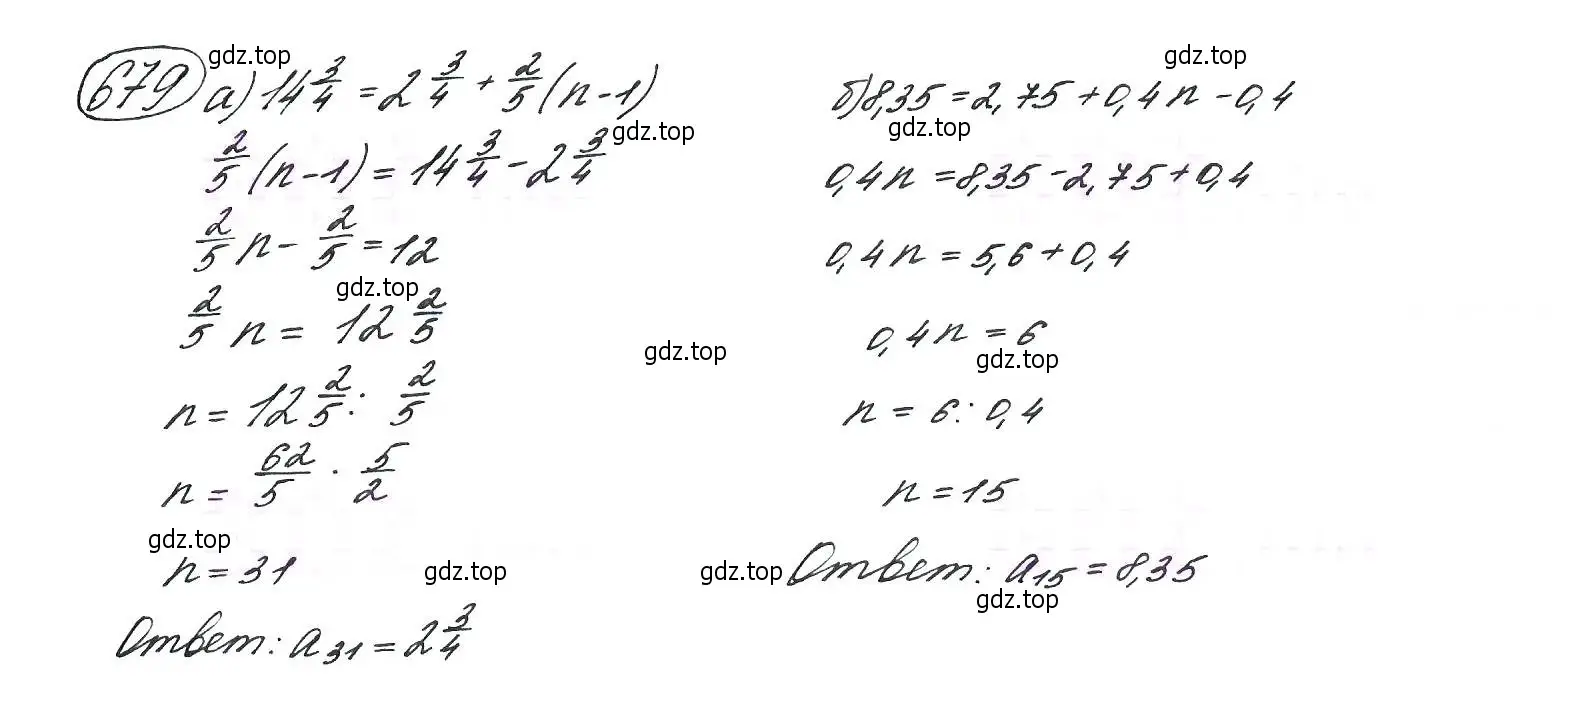 679 а) 14 3/4 = 2 3/4 + 2/5 (n-1)
2/5 (n-1) = 14 3/4 - 2 3/4
2/5 n - 2/5 = 12
2/5 n = 12 2/5
n = 12 2/5 : 2/5
n = 62/5 · 5/2
n = 31
Ответ: a₃₁ = 2 3/4
б) 8,35 = 2,75 + 0,4n - 0,4
0,4n = 8,35 - 2,75 + 0,4
0,4n = 5,6 + 0,4
0,4n = 6
n = 6 : 0,4
n = 15
Ответ: a₁₅ = 8,35
gdz.top
gdz.top
gdz.top
gdz.top
gdz.top
gdz.top
gdz.top
gdz.top
gdz.top
gdz.top
gdz.top